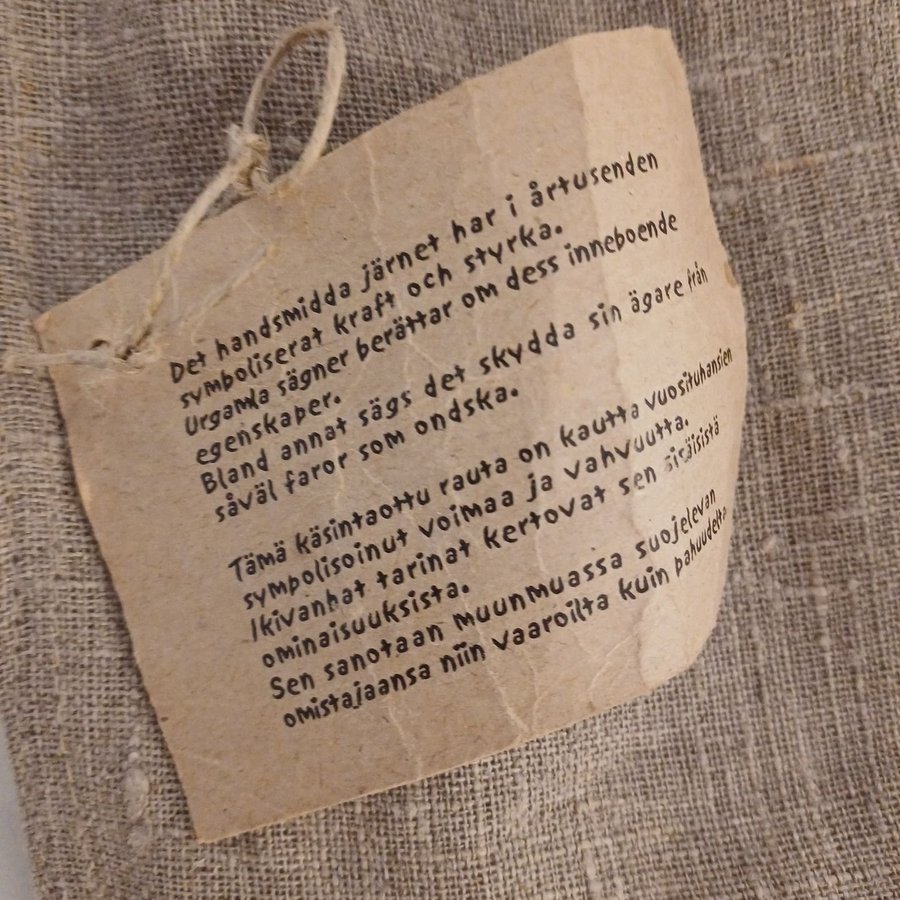 Det handsmidda järnet har i årtusenden
symboliserat kraft och styrka.
Urgamla sägner berättar om dess inneboende
egenskaper.
Bland annat sägs det skydda sin ägare från
såväl faror som ondska.
Tämä käsintaottu rauta on kautta vuosituhansien
symbolisoinut voimaa ja vahvuutta.
Ikivanhat tarinat kertovat sen sisäisistä
ominaisuuksista.
Sen sanotaan muunmuassa suojelevan
omistajaansa niin vaaroilta kuin pahuudelta